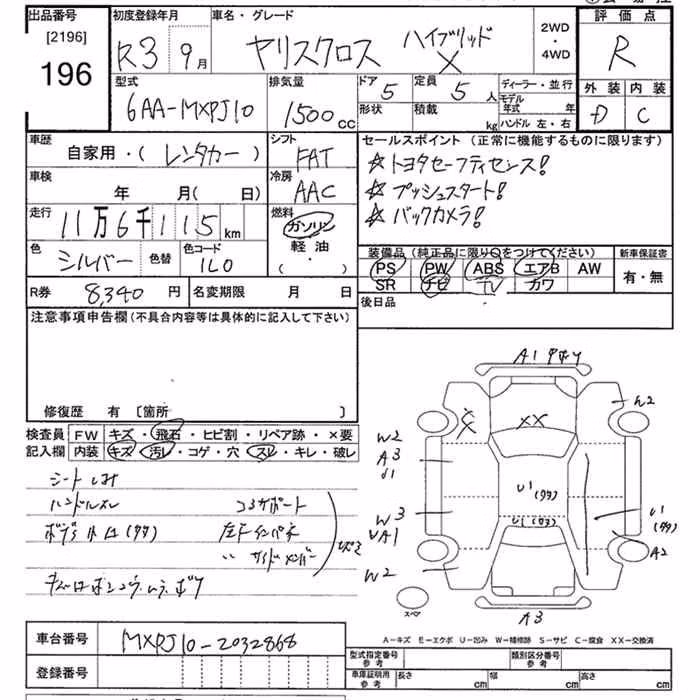 出品番号 初度登録年月 車名・グレード 評価点
[2196]
196
R3 9月 ヤリスクロス ハイブリッド X 2WD・4WD R
型式 排気量 ドア 5 定員 5人 ディーラー・並行 外装 内装
6AA-MXPJ10 1500cc 形状 積載 kg モデル年式 年 D C
ハンドル 左・右
車歴 シフト セールスポイント (正常に機能するものに限ります)
自家用・(レンタカー) FAT ☆トヨタセーフティセンス!
車検 冷房 ☆プッシュスタート!
年 月(日) AAC ☆バックカメラ!
走行 燃料
11万6千115km ガソリン
色 シルバー 色替 色コード 1L0 軽油・( )
装備品 (純正品に限り○をつけてください) 新車保証書
PS PW ABS エアB AW 有・無
SR ナビ TV カワ
R券 8,340円 名変期限 月 日 後日品
注意事項申告欄(不具合内容等は具体的に記入して下さい)
修復歴 有 [箇所 ]
検査員 FW キズ・飛石・ヒビ割・リペア跡・×要
記入欄 内装 キズ・汚レ・コゲ・穴・スレ・キレ・破レ
シートしみ
ハンドルスレ コアサポート
左Fインパネ
〃 サイドメンバー
A1
W2
X
XX
W2
A3
U1
W3
W2
U1
U1
U1
A2
A3
スペア
A-キズ E-エクボ U-凹み W-補修跡 S-サビ C-腐食 XX-交換済
車台番号 MXPJ10-2032868
登録番号
型式指定番号 参考 類別区分番号 参考
車庫証明用 参考 長さ cm 幅 cm 高さ cm